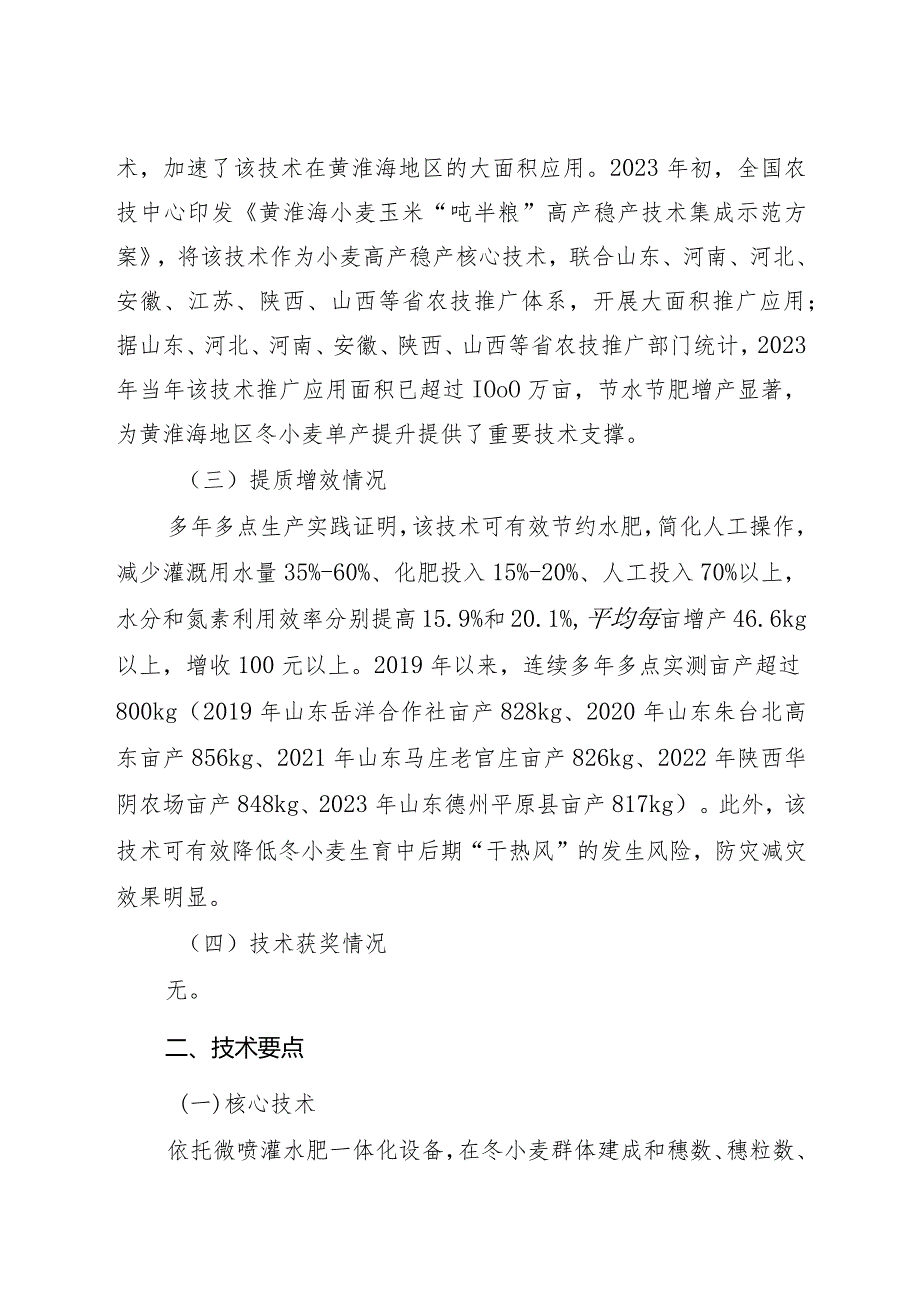 术，加速了该技术在黄淮海地区的大面积应用。2023 年初，全国农
技中心印发《黄淮海小麦玉米“吨半粮”高产稳产技术集成示范方
案》，将该技术作为小麦高产稳产核心技术，联合山东、河南、河北、
安徽、江苏、陕西、山西等省农技推广体系，开展大面积推广应用；
据山东、河北、河南、安徽、陕西、山西等省农技推广部门统计，2023
年当年该技术推广应用面积已超过 IOoO 万亩，节水节肥增产显著，
为黄淮海地区冬小麦单产提升提供了重要技术支撑。
（三）提质增效情况
多年多点生产实践证明，该技术可有效节约水肥，简化人工操作，
减少灌溉用水量 35%-60%、化肥投入 15%-20%、人工投入 70%以上，
水分和氮素利用效率分别提高 15.9%和 20.1%，平均每亩增产 46.6kg
以上，增收 100 元以上。2019 年以来，连续多年多点实测亩产超过
800kg（2019 年山东岳洋合作社亩产 828kg、2020 年山东朱台北高
东亩产 856kg、2021 年山东马庄老官庄亩产 826kg、2022 年陕西华
阴农场亩产 848kg、2023 年山东德州平原县亩产 817kg）。此外，该
技术可有效降低冬小麦生育中后期“干热风”的发生风险，防灾减灾
效果明显。
（四）技术获奖情况
无。
二、技术要点
(一)核心技术
依托微喷灌水肥一体化设备，在冬小麦群体建成和穗数、穗粒数、